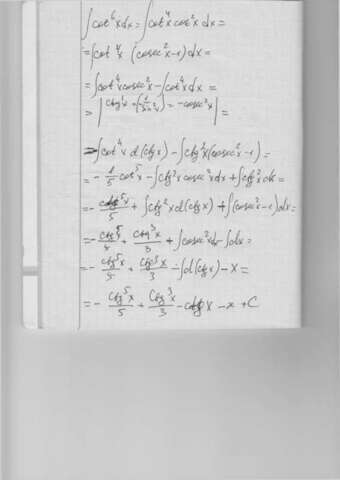 ∫cot⁶x dx = ∫cot⁴x cot²x dx =
= ∫cot⁴x (cosec²x-1) dx =
= ∫cot⁴x cosec²x - ∫cot⁴x dx =
= | ctg'x = = -cosec²x | =
= -∫cot⁴x d(ctgx) - ∫ctg²x(cosec²x-1) =
= - 1/5 cot⁵x - ∫ctg²x cosec²x dx + ∫ctg²x dx =
= - ctg⁵x/5 + ∫ctg²x d(ctgx) + ∫(cosec²x-1)dx =
= - ctg⁵x/5 + ctg³x/3 + ∫cosec²x dx - ∫dx =
= - ctg⁵x/5 + ctg³x/3 - ∫d(ctgx) - x =
= - ctg⁵x/5 + ctg³x/3 - ctgx - x + C